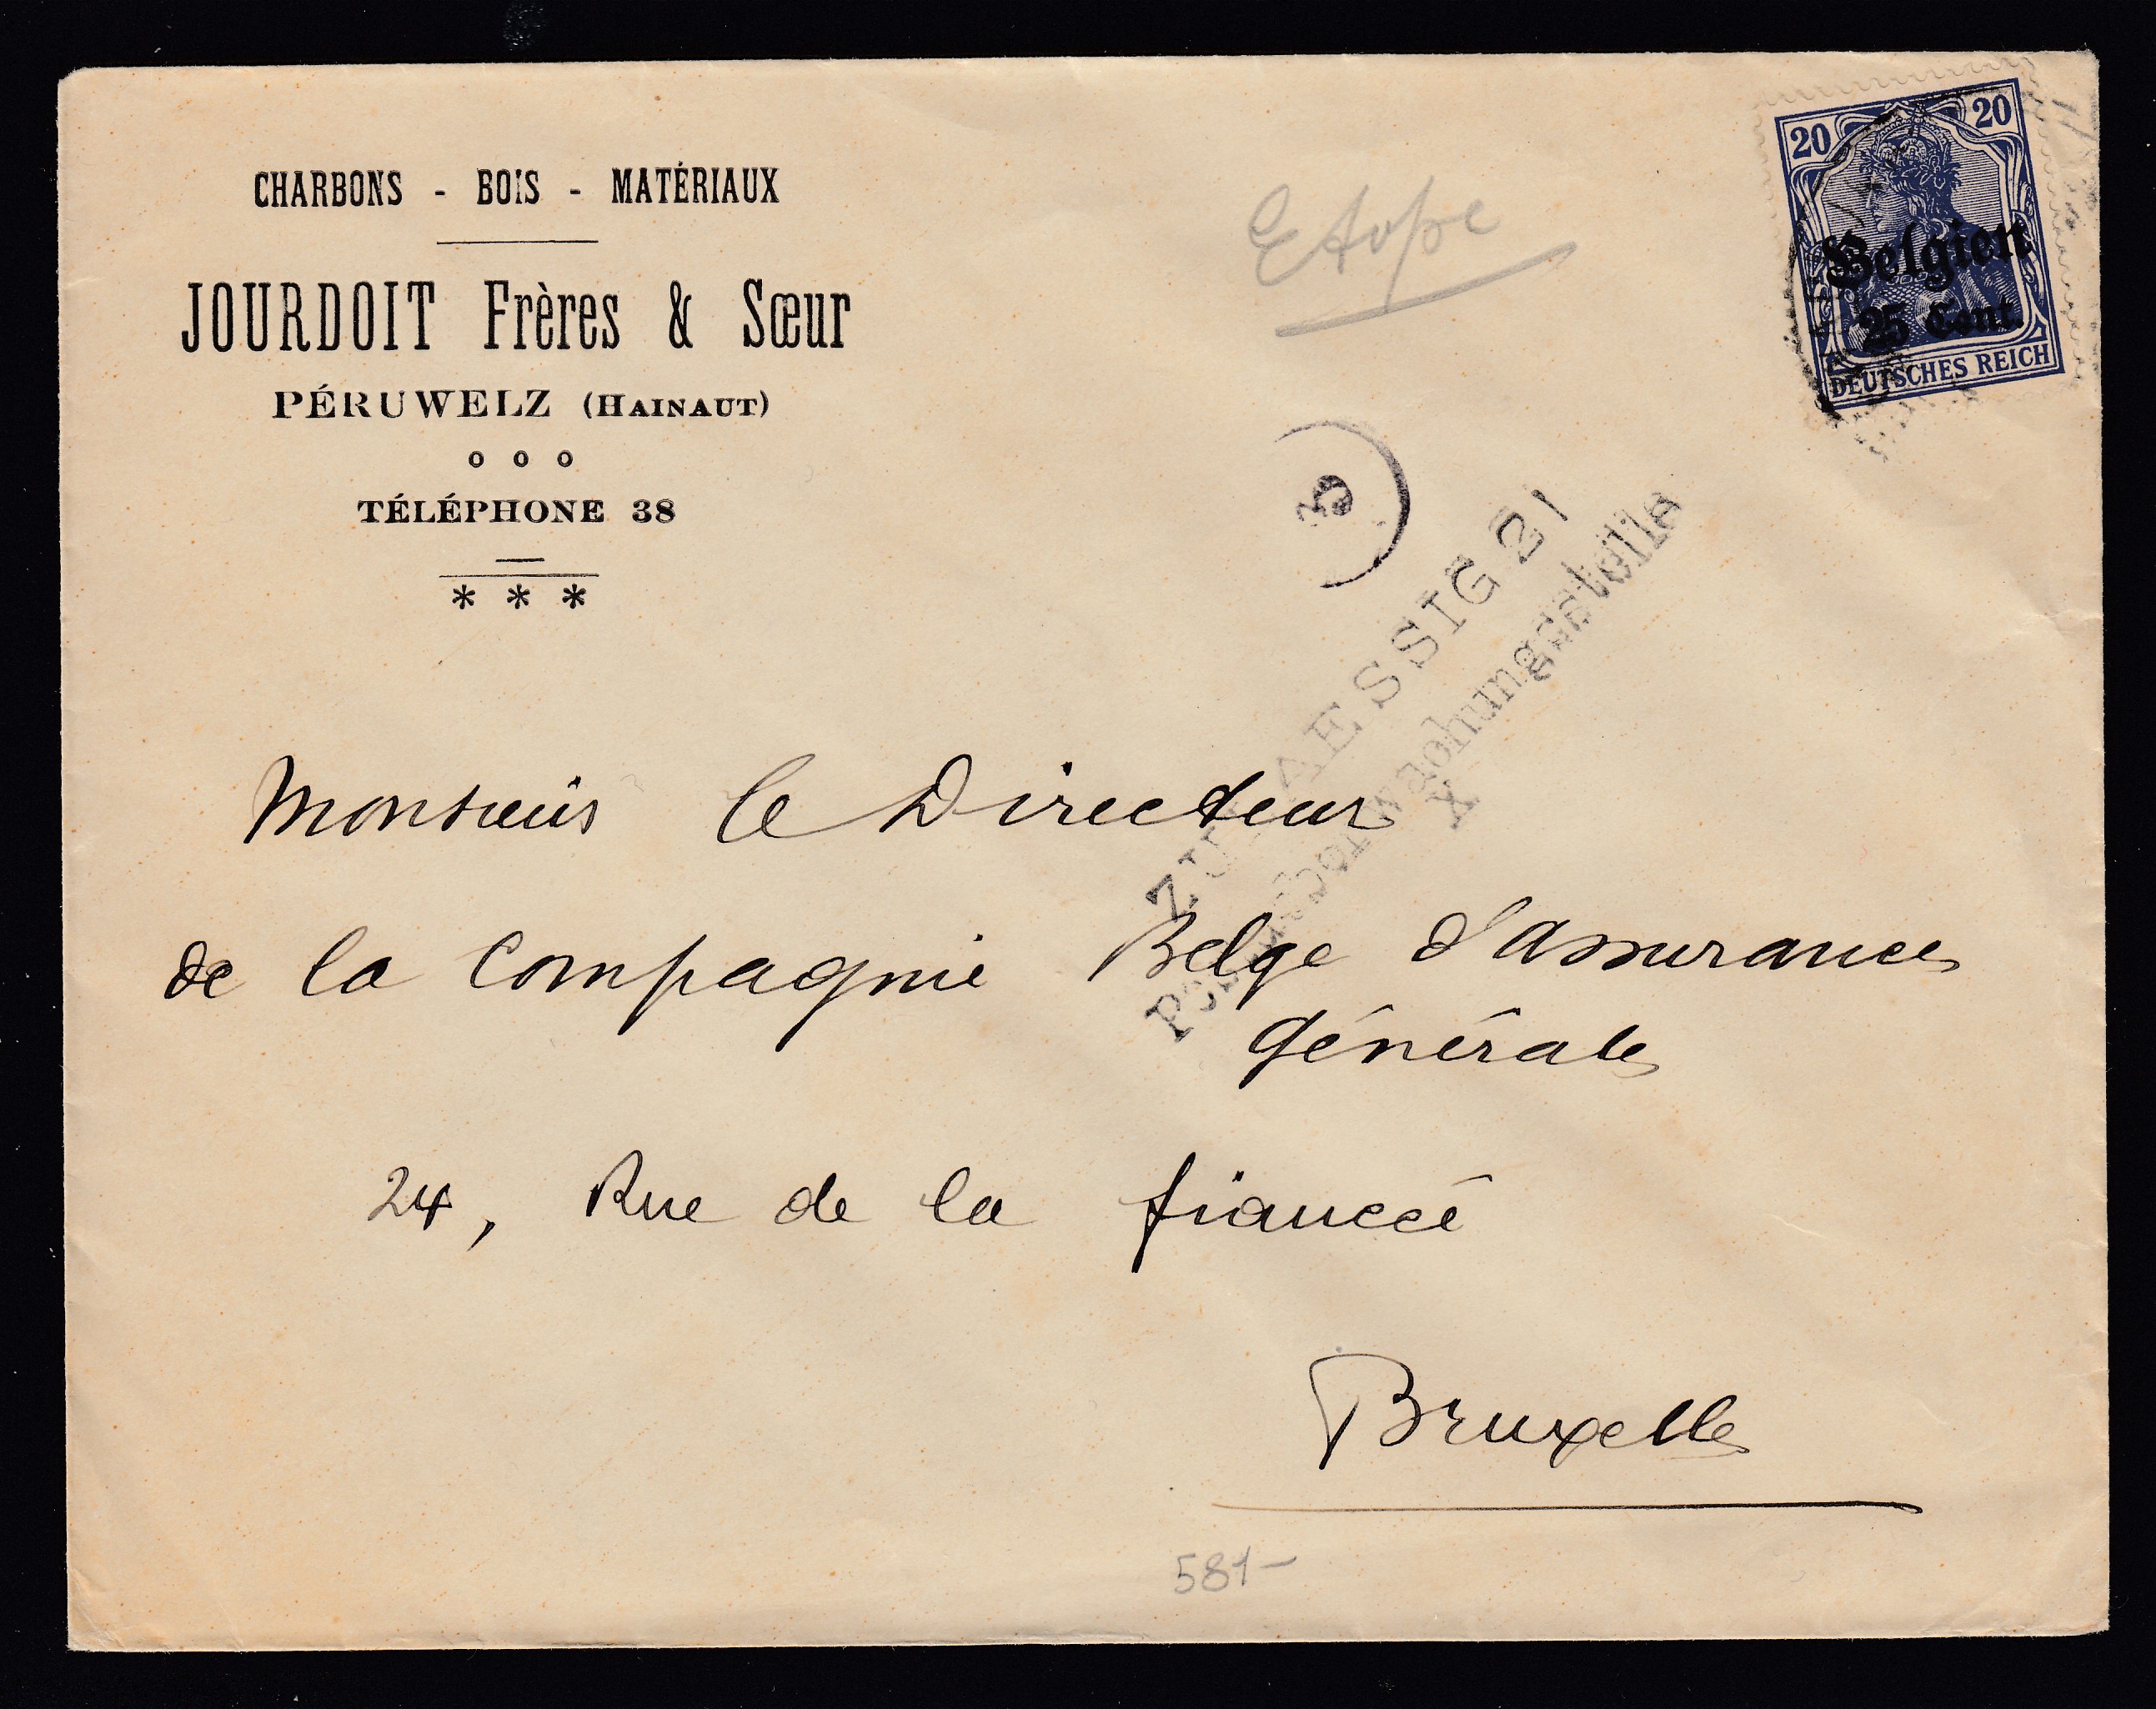 CHARBONS - BOIS - MATÉRIAUX
JOURDOIT Frères & Sœur
PÉRUWELZ (HAINAUT)
o o o
TÉLÉPHONE 38
* * *
Etape
20 20
Belgien
25 Cent.
DEUTSCHES REICH
3
ZULAESSIG 21
Postüberwachungsstelle
X
Monsieur le Directeur
de la Compagnie Belge d'assurances
Générales
24, Rue de la fiancée
Bruxelles
581-